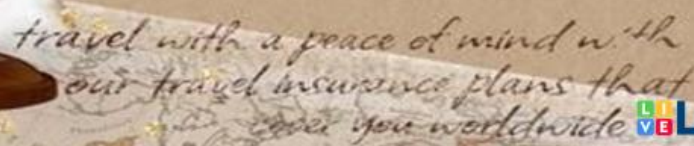 travel with a peace of mind with
our travel insurance plans that
cover you worldwide
LIVE L